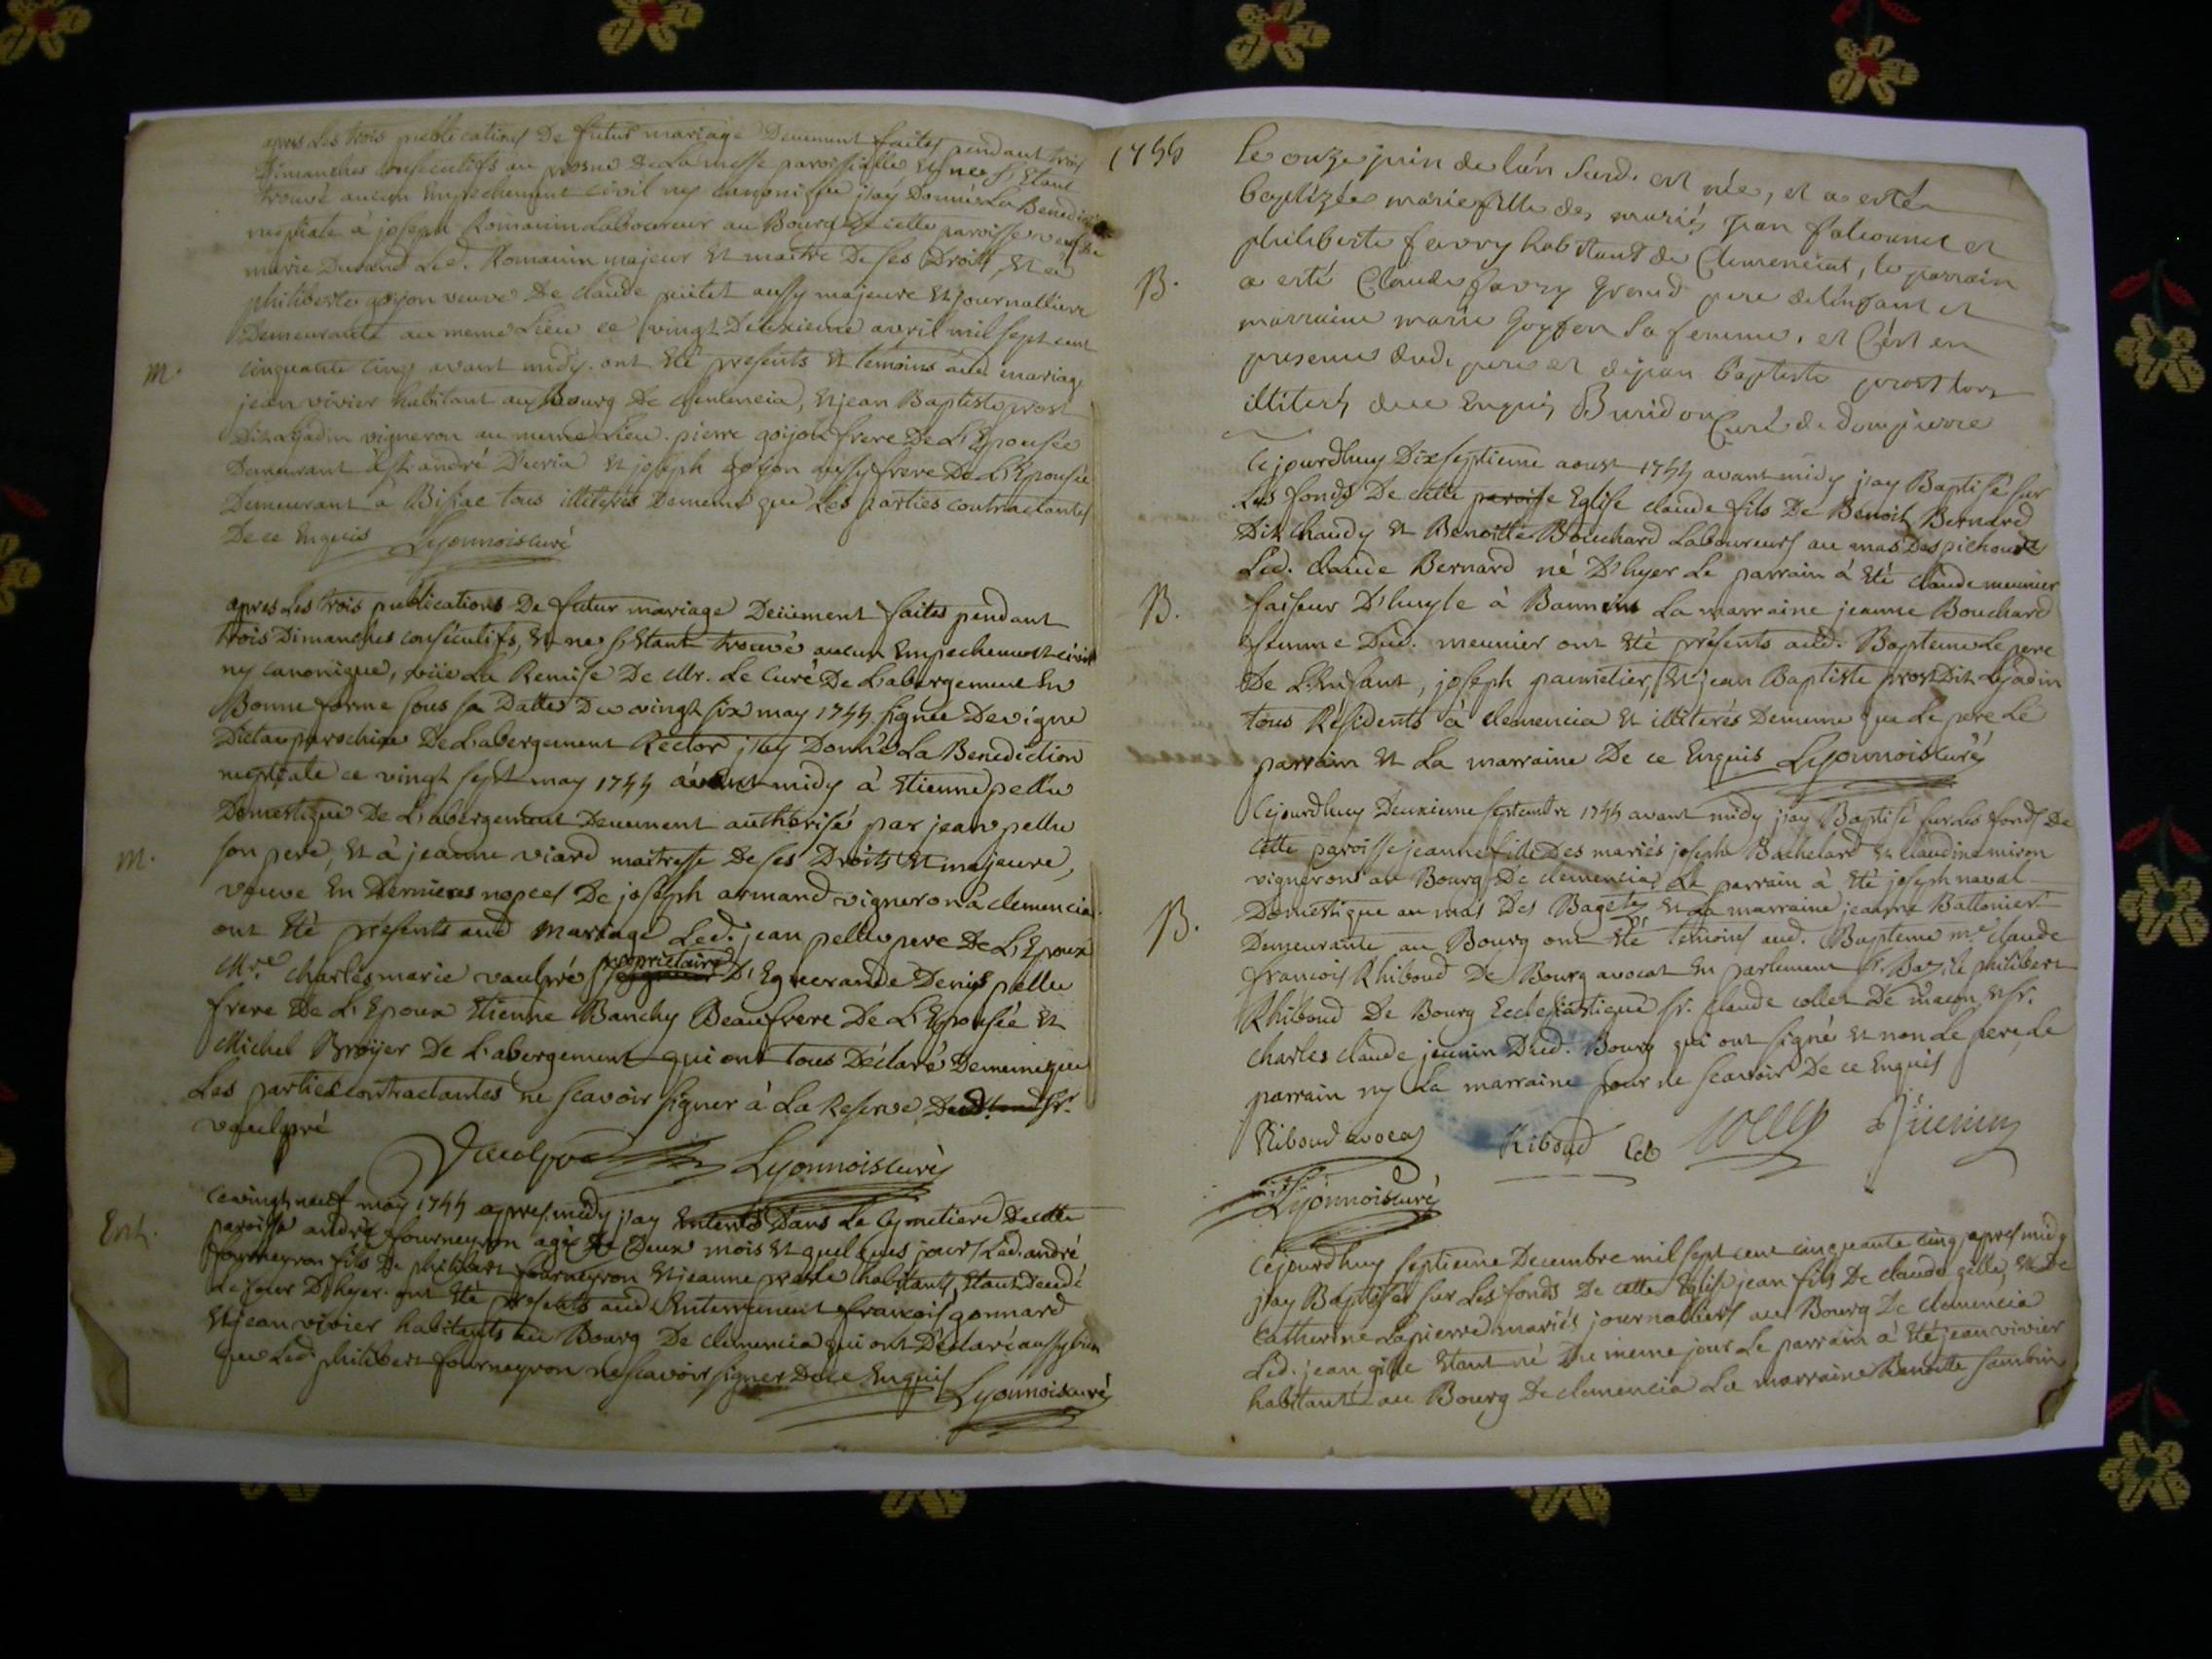 apres Les trois publications De futur mariage Deuement faites pendant trois
Dimanches consecutifs au prosne De La messe paroissialle et ne s'Etant
trouvé aucun Empechement civil ny canonique j'ay Donné La Benediction
nuptiale à joseph Romanin Laboureur au Bourg De cette paroisse veuf de
marie Durand Led. Romanin majeur Et maitre De ses Droits Et a
philiberte goyon veuve De claude aussy majeure Et journalliere
Demeurante au meme Lieu ce vingt Deuxieme avril mil sept cent
m. cinquante cinq avant midy. ont Eté presents Et temoins mariage
jean vivier habitant au Bourg De clemencia, Et jean Baptiste prost
Dit Lajadin vigneron au meme Lieu. pierre goyon frere De L'Epousée
Demeurant à st. andré Et joseph goyon aussy frere De L'Epousée
Demeurant a tous illiterés Dememe que Les parties contractantes
De ce Enquis Lyonnois curé
apres Les trois publications De futur mariage Deüement faites pendant
trois Dimanches consécutifs, Et ne s'Etant trouvé aucun Empechement civil
ny canonique, vüe La Remise De Mr. Le Curé De Labergement En
Bonne forme sous sa Datte Du vingt six may 1755. signée Devigne
Dictae parochiae De Labergement Rector j'ay Donné La Benediction
nuptiale ce vingt sept may 1755 avant midy à Etienne pellu
Domestique De Labergement Deuement authorisé par jean pellu
m. son pere, Et à jeanne viard maitresse De ses Droits Et majeure,
veuve En Dernieres nopces De joseph armand vigneron à clemencia.
ont Eté présents aud mariage Led. jean pellu pere De L'Epoux
Mre. charles marie vaulpré proprietaire D'Eguerande Denis pellu
frere De L'Epoux Etienne Banchy Beaufrere De L'Epousée Et
Michel Broyer De Labergement qui ont tous Déclaré Dememe que
Les parties contractantes ne scavoir signer à La Reserve Dud. sr.
vaulpré
Vaulpré Lyonnois curé
Ent. ce vingt neuf may 1755 apres midy j'ay Enterré Dans Le Cymetiere De cette
paroisse andré fourneyron agé De Deux mois Et quelques jours Led. andré
fourneyron fils De philibert fourneyron Et jeanne habitants, Etant Decedé
Le jour D'hyer. ont Eté presents aud Enterrement francois gonnard
Et jean vivier habitants au Bourg De clemencia qui ont Déclaré aussy bien
que Led. philibert fourneyron ne scavoir signer De ce Enquis
Lyonnois curé
1755 Le onze juin de l'an susd. est née, et a esté
baptizée marie fille des mariés jean falconnet et
philiberte favry habitant de Clemenciat, le parrain
B. a esté Claude favry grand pere de l'enfant et
marraine marie goyfon sa femme. et C'est en
presence dud. pere et de jean baptiste prost tous
illiterés de ce enquis Buridon Curé de dompierre
Cejourdhuy Dix septieme aoust 1755 avant midy j'ay Baptisé sur
Les fonds De cette paroisse Eglise claude fils De Benoit Bernard
Dit chaudy Et Benoitte Bouchard Laboureurs au mas Des pichoux
Led. claude Bernard né D'hyer Le parrain à Eté claude meunier
B. faiseur D'huyle à La marraine jeanne Bouchard
femme Dud. meunier ont Eté présents aud. Bapteme Le pere
De L'Enfant, joseph parmetier, Et jean Baptiste prost Dit Lajadin
tous Résidents à clemencia Et illiterés Dememe que Le pere Le
parrain Et La marraine De ce Enquis Lyonnois curé
Cejourdhuy Deuxieme septembre 1755 avant midy j'ay Baptisé sur Les fonds De
cette paroisse jeanne fille Des mariés joseph Bachelard Et claudine miron
vignerons au Bourg De clemencia Le parrain à Eté joseph naval
B. Domestique au mas Des Bagets Et La marraine jeanne Battonier
Demeurante au Bourg ont Eté temoins aud. Bapteme me. claude
francois Rhiboud De Bourg avocat En parlement sr. Bazile philibert
Rhiboud De Bourg Ecclesiastique sr. claude collet De macon, Et sr.
charles claude jeunin Dud. Bourg qui ont signé Et non Le pere, Le
parrain ny La marraine pour ne scavoir De ce Enquis
Riboud avocat Riboud
Lyonnois curé
Cejourdhuy septieme Decembre mil sept cent cinquante cinq apres midy
j'ay Baptisé sur Les fonds De cette Eglise jean fils De claude gille, Et De
catherine Lapierre mariés journalliers au Bourg De clemencia
Led. jean gille Etant né Du meme jour Le parrain à Eté jean vivier
habitant au Bourg De clemencia La marraine Benoitte Sambin